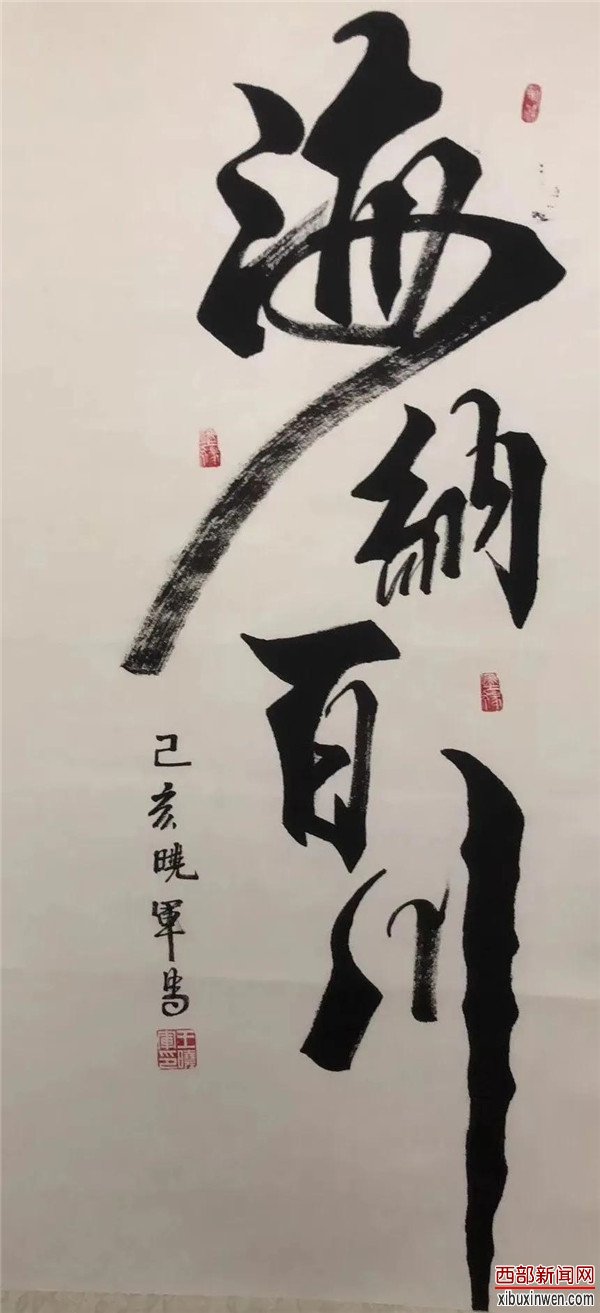 海納百川
己亥曉軍書
王曉軍印
西部新闻网
xibuxinwen.com